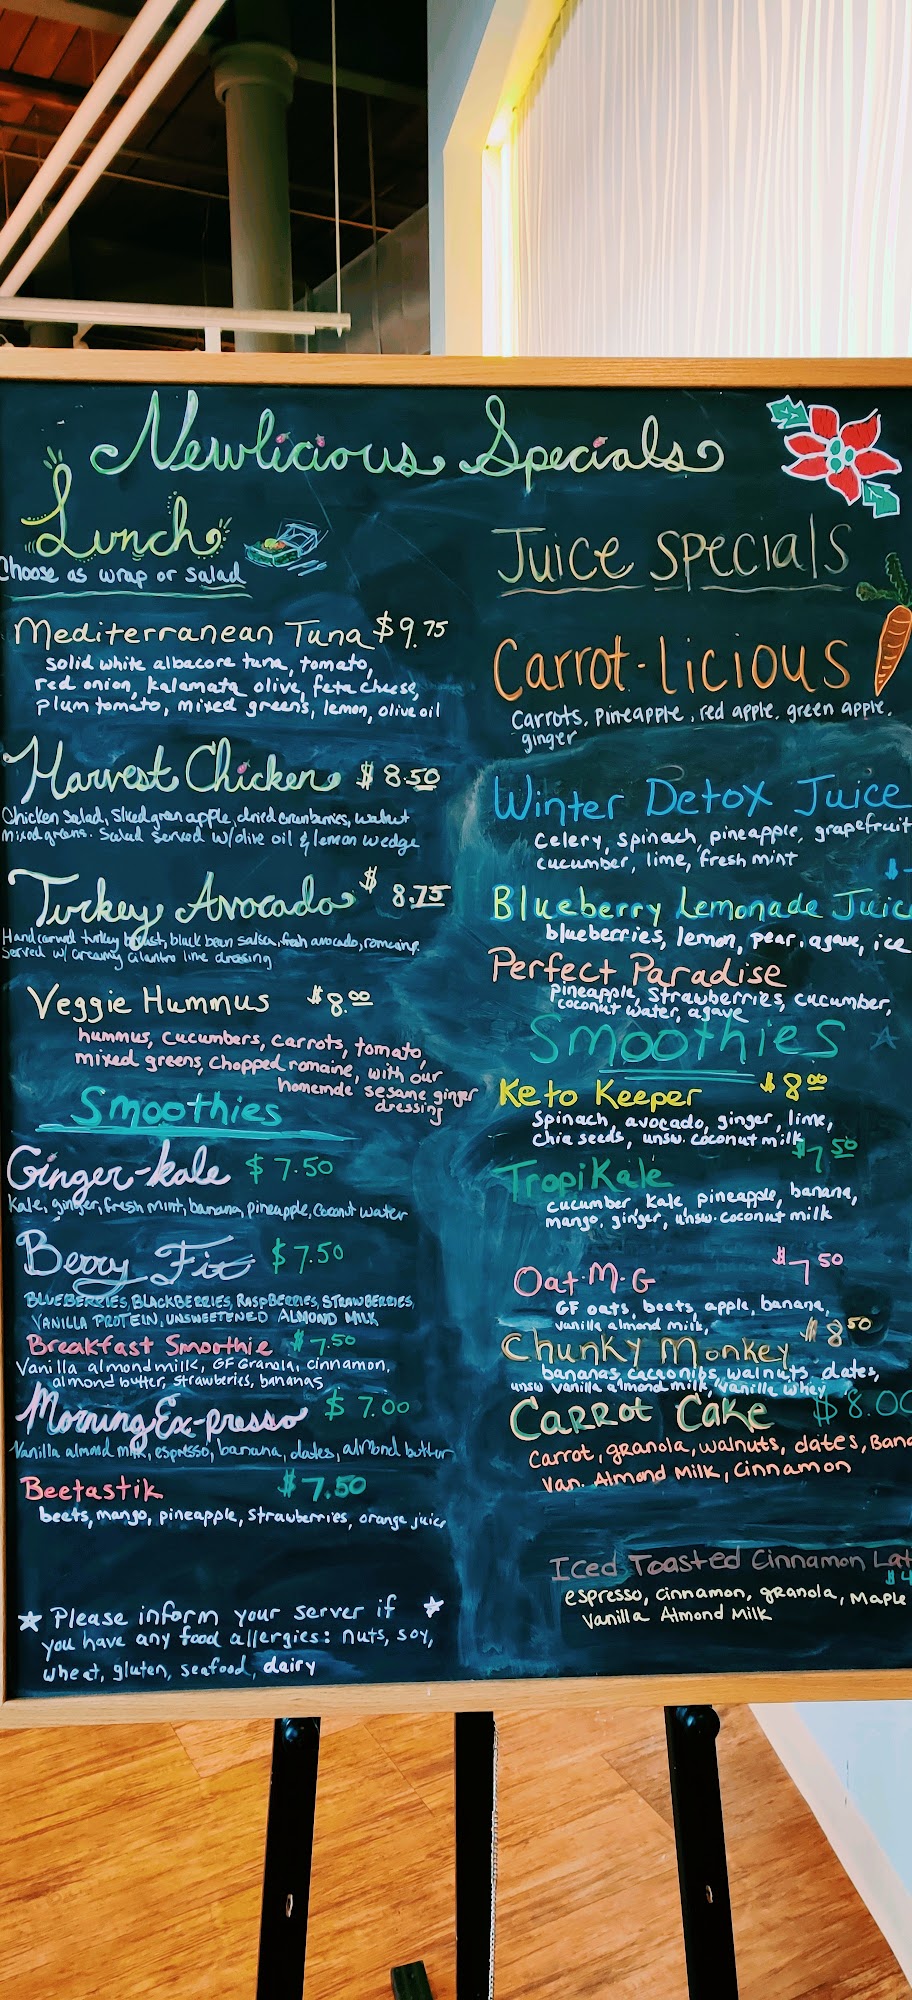 Newlicious Specials
Lunch
Choose as wrap or salad
Mediterranean Tuna $9.75
solid white albacore tuna, tomato,
red onion, kalamata olive, feta cheese,
plum tomato, mixed greens, lemon, olive oil
Harvest Chicken $8.50
Chicken Salad, Sliced green apple, dried cranberries, walnut
mixed greens. Salad Served w/olive oil & lemon wedge
Turkey Avocado $8.75
Hand carved turkey breast, black bean salsa, fresh avocado, romaine,
Served w/ creamy cilantro lime dressing
Veggie Hummus $8.00
hummus, cucumbers, carrots, tomato,
mixed greens, chopped romaine, with our
homemde sesame ginger
dressing
Smoothies
Ginger-kale $7.50
Kale, ginger, fresh mint, banana, pineapple, Coconut water
Berry Fit $7.50
BLUEBERRIES, BLACKBERRIES, RASPBERRIES, STRAWBERRIES,
VANILLA PROTEIN, UNSWEETENED ALMOND MILK
Breakfast Smoothie $7.50
Vanilla almond milk, GF Granola, cinnamon,
almond butter, strawberries, bananas
Morning Ex-presso $7.00
Vanilla almond milk, espresso, banana, dates, almond butter
Beetastik $7.50
beets, mango, pineapple, strawberries, orange juice
Please inform your server if
you have any food allergies: nuts, soy,
wheat, gluten, seafood, dairy
Juice Specials
Carrot-licious
Carrots, pineapple, red apple, green apple,
ginger
Winter Detox Juice
celery, spinach, pineapple, grapefruit
cucumber, lime, fresh mint
Blueberry Lemonade Juic
blueberries, lemon, pear, agave, ice
Perfect Paradise
pineapple, strawberries, cucumber,
coconut water, agave
Smoothies
Keto Keeper $8.00
Spinach, avocado, ginger, lime,
chia seeds, unsw. coconut milk
TropiKale $7.50
cucumber kale, pineapple, banana,
mango, ginger, unsw. coconut milk
Oat-M-G $7.50
GF oats, beets, apple, banana,
vanilla almond milk,
Chunky Monkey $8.50
bananas, cacao nibs, walnuts, dates,
unsw vanilla almond milk, vanilla whey
Carrot Cake $8.00
Carrot, granola, walnuts, dates, Bana
Van. Almond Milk, cinnamon
Iced Toasted Cinnamon Lat
$4
espresso, cinnamon, granola, Maple
Vanilla Almond Milk